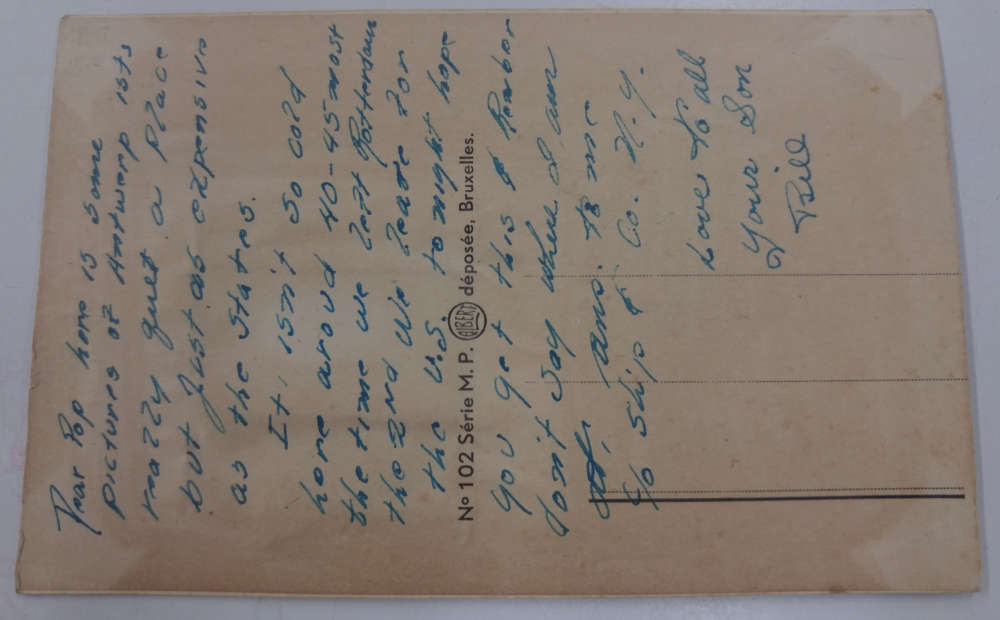 Dear Pop here is some
pictures of Antwerp its
really quiet a place
but Just as expensive
as the States.
It, isn't so cold
here aroud 40-45 most
the time we left Rotterdam
the 2nd We leave for
the U.S. tonight hope
Nº 102 Série M. P. ALBERT déposée, Bruxelles.
you get this
dont say where I am
ans. to me
c/o ship & Co. N.Y.
Love To all
Your Son
Bill